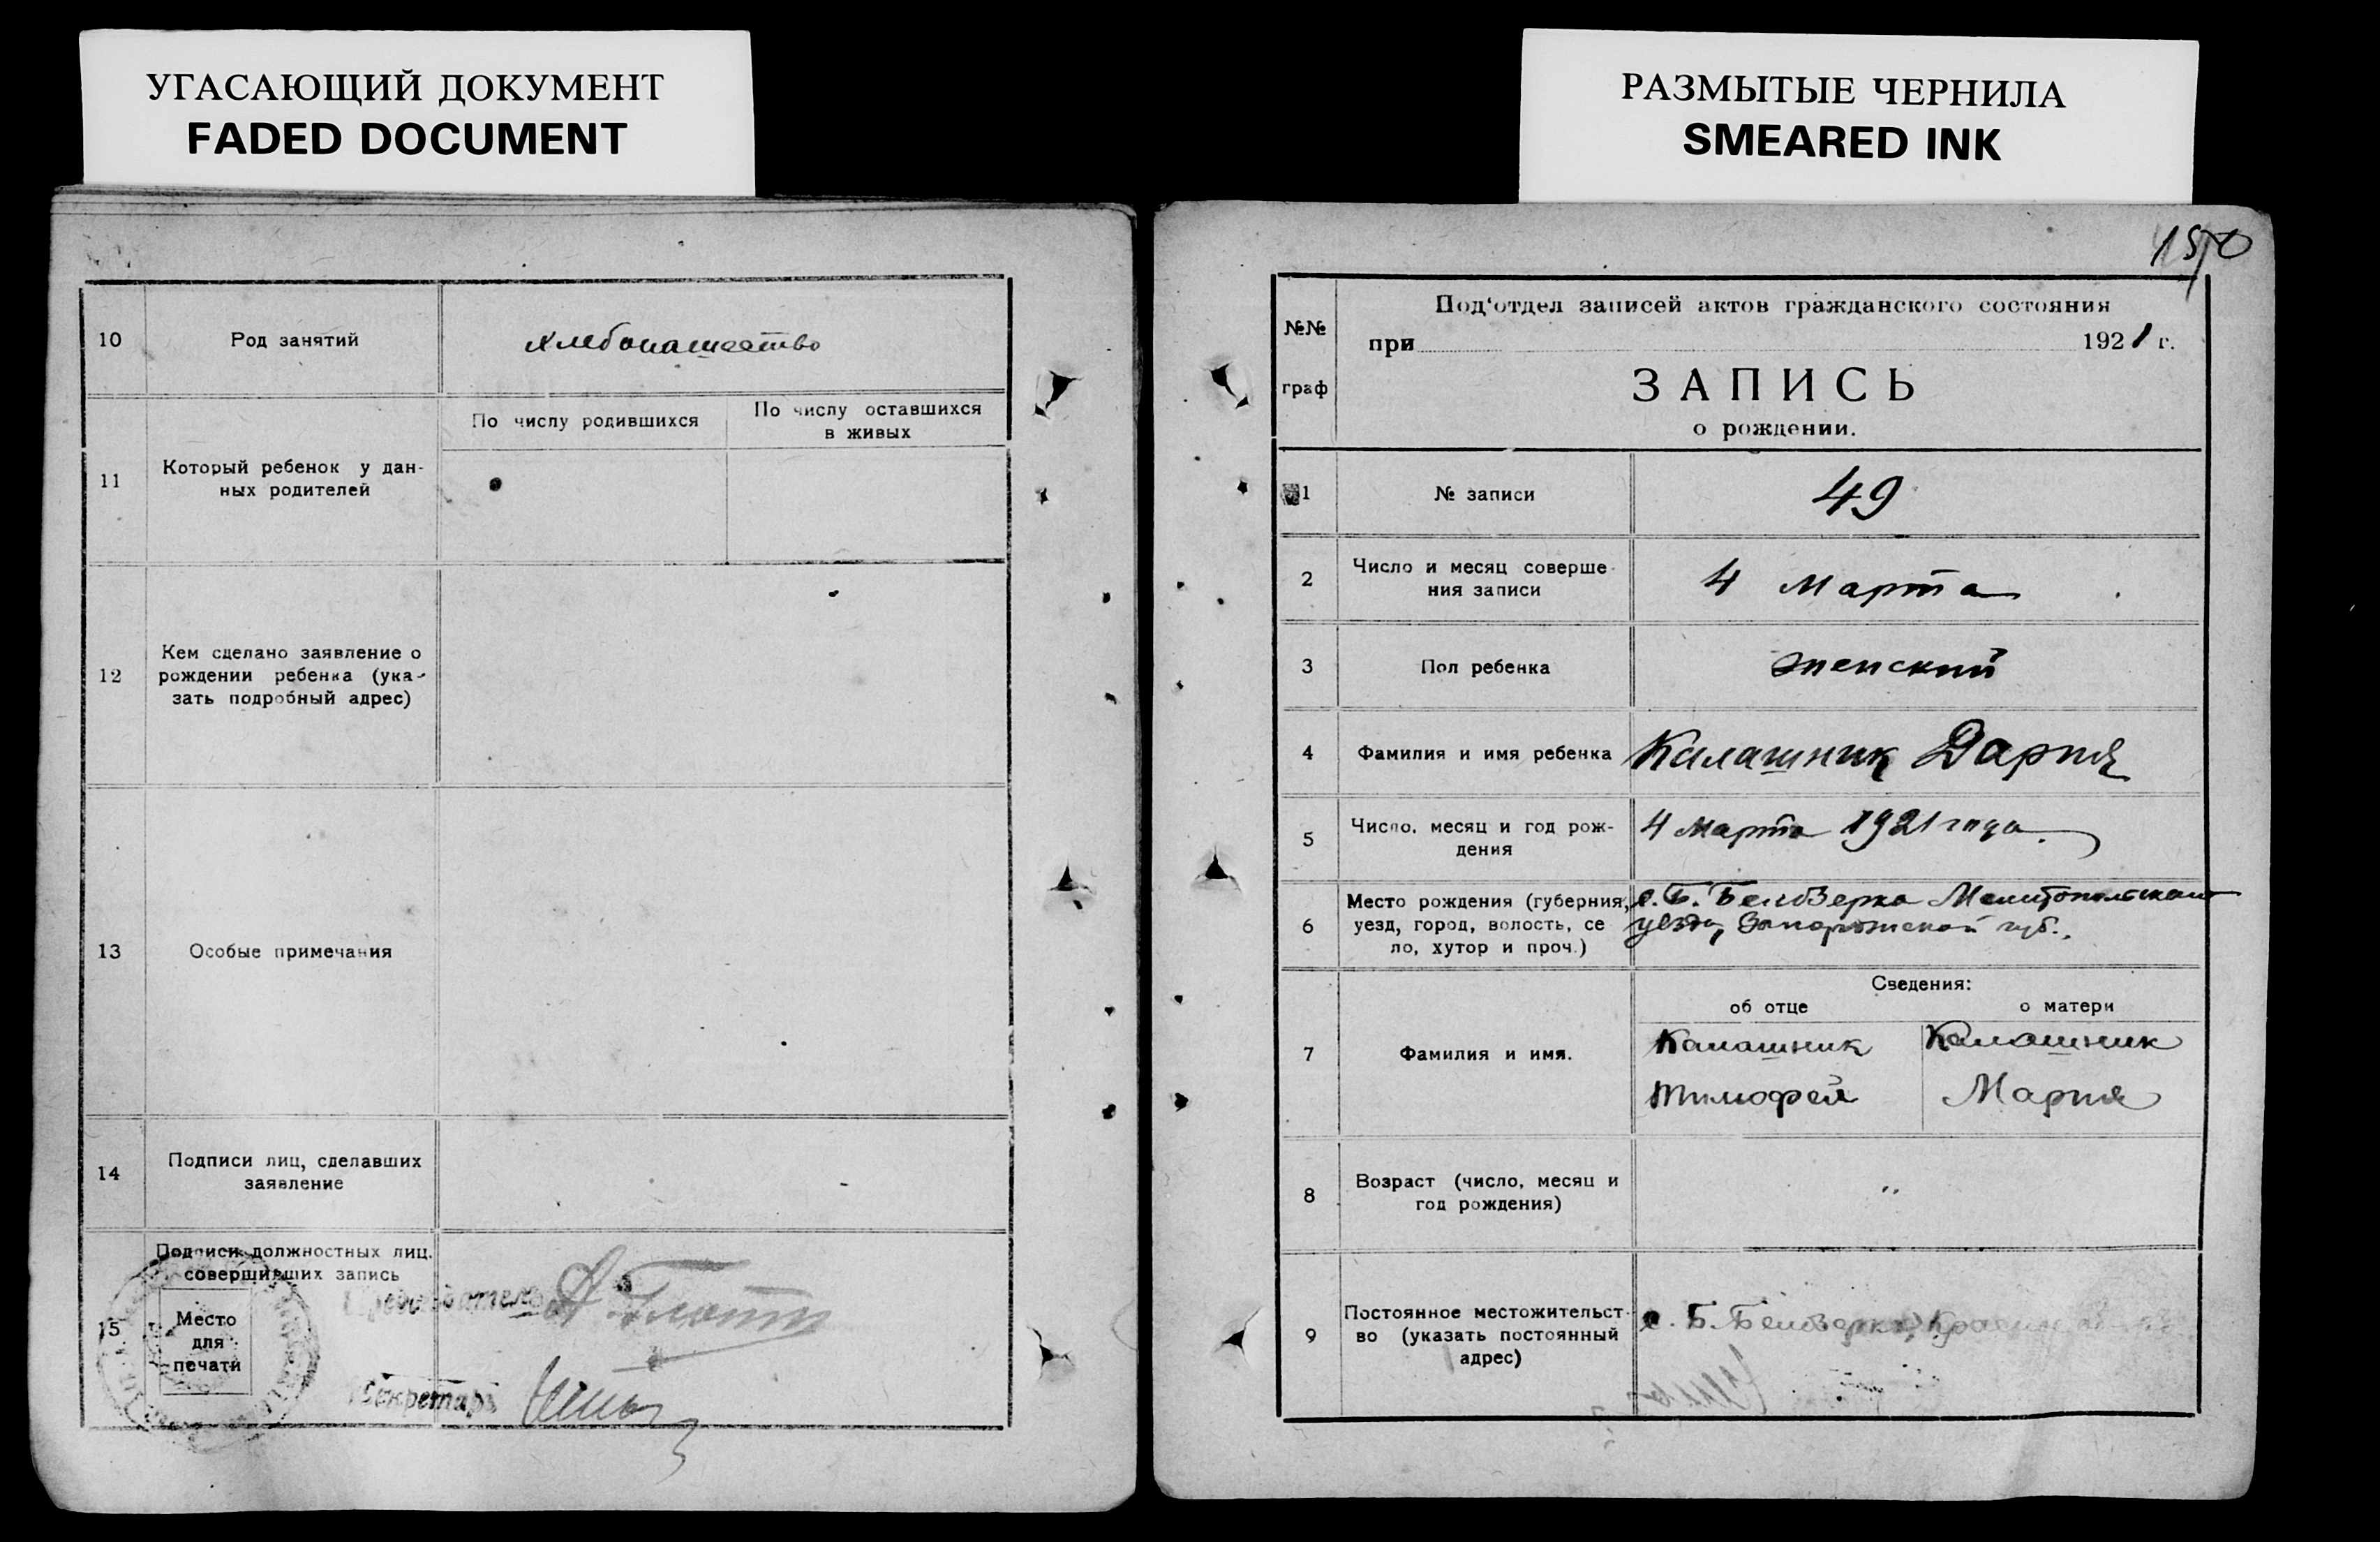 УГАСАЮЩИЙ ДОКУМЕНТ
FADED DOCUMENT
РАЗМЫТЫЕ ЧЕРНИЛА
SMEARED INK
10
Род занятий
хлебопашество
11
Который ребенок у дан-
ных родителей
По числу родившихся
По числу оставшихся
в живых
12
Кем сделано заявление о
рождении ребенка (ука-
зать подробный адрес)
13
Особые примечания
14
Подписи лиц, сделавших
заявление
15
Подписи должностных лиц.
совершивших запись
Место
для
печати
Председатель
Секретарь
150
№№
граф
Под‘отдел записей актов гражданского состояния
при 1921 г.
ЗАПИСЬ
о рождении.
1
№ записи
49
2
Число и месяц соверше-
ния записи
4 Марта
3
Пол ребенка
женский
4
Фамилия и имя ребенка
Калашник Дария
5
Число, месяц и год рож-
дения
4 Марта 1921 года.
6
Место рождения (губерния,
уезд, город, волость, се
ло, хутор и проч.)
с. Б. Белозерка Мелитопольского
уезда, Запорожской губ.
7
Фамилия и имя.
Сведения:
об отце
о матери
Калашник
Тимофей
Калашник
Мария
8
Возраст (число, месяц и
год рождения)
"
9
Постоянное местожительст-
во (указать постоянный
адрес)
с. Б. Белозерка